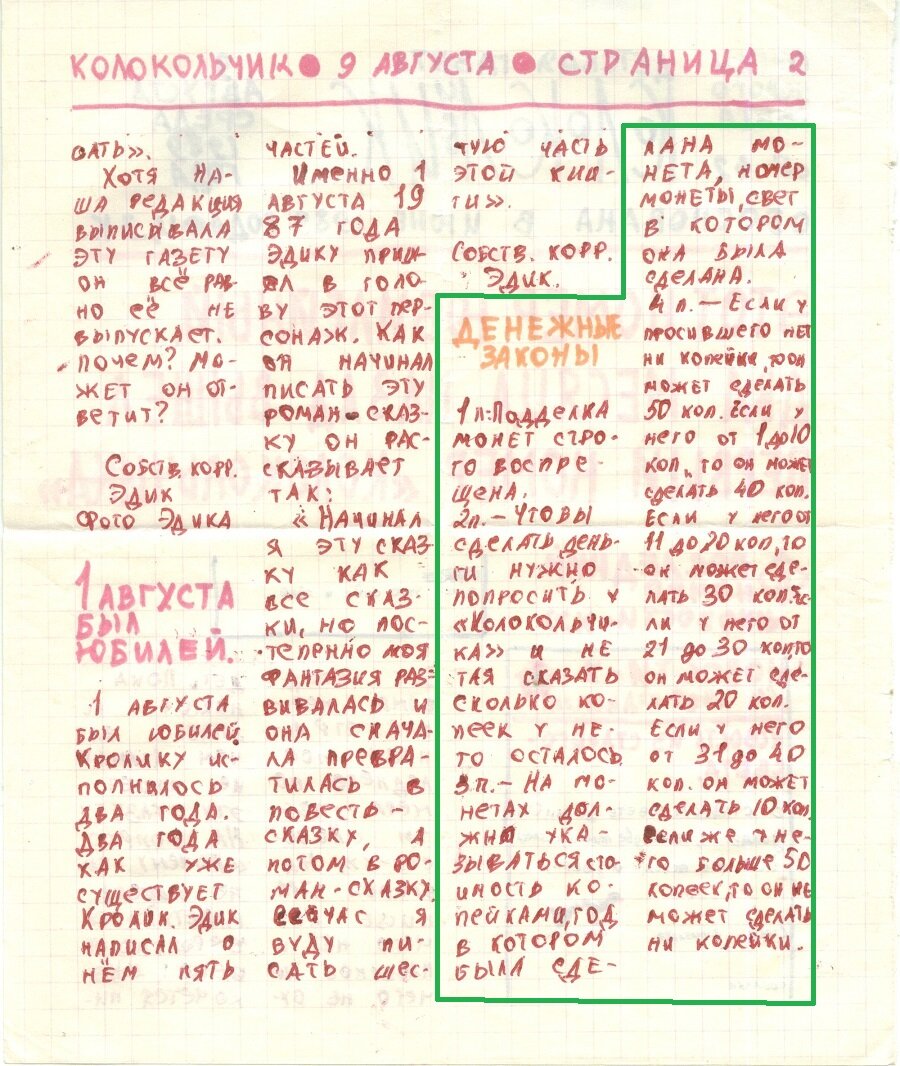 КОЛОКОЛЬЧИК ● 9 АВГУСТА ● СТРАНИЦА 2
ВАТЬ».
Хотя НА-
ША РЕДАКЦИЯ
ВЫПИСЫВАЛА
ЭТУ ГАЗЕТУ
ОН ВСЁ РАВ-
НО ЕЁ НЕ
ВЫПУСКАЕТ.
ПОЧЕМ? МО-
ЖЕТ ОН ОТ-
ВЕТИТ?
СОБСТВ. КОРР.
ЭДИК
ФОТО ЭДИКА
1 АВГУСТА
БЫЛ
ЮБИЛЕЙ.
1 АВГУСТА
БЫЛ ЮБИЛЕЙ.
КРОЛИКУ ИС-
ПОЛНИЛОСЬ
ДВА ГОДА.
ДВА ГОДА
КАК УЖЕ
СУЩЕСТВУЕТ
КРОЛИК. ЭДИК
НАПИСАЛ О
НЁМ ПЯТЬ
ЧАСТЕЙ.
ИМЕННО 1
АВГУСТА 19
87 ГОДА
ЭДИКУ ПРИШ-
ЕЛ В ГОЛО-
ВУ ЭТОТ ПЕР-
СОНАЖ. КАК
ОН НАЧИНАЛ
ПИСАТЬ ЭТУ
РОМАН-СКАЗ-
КУ ОН РАС-
СКАЗЫВАЕТ
ТАК:
«НАЧИНАЛ
Я ЭТУ СКАЗ-
КУ КАК
ВСЕ СКАЗ-
КИ, НО ПОС-
ТЕПЕННО МОЯ
ФАНТАЗИЯ РАЗ-
ВИВАЛАСЬ И
ОНА СНАЧА-
ЛА ПРЕВРА-
ТИЛАСЬ В
ПОВЕСТЬ-
СКАЗКУ, А
ПОТОМ В РО-
МАН-СКАЗКУ.
СЕЙЧАС Я
БУДУ ПИ-
САТЬ ШЕС-
ТУЮ ЧАСТЬ
ЭТОЙ КНИ-
ГИ».
СОБСТВ. КОРР.
ЭДИК.
ДЕНЕЖНЫЕ
ЗАКОНЫ
1 п.-ПОДДЕЛКА
МОНЕТ СТРО-
ГО ВОСПРЕ-
ЩЕНА.
2п.-ЧТОБЫ
СДЕЛАТЬ ДЕНЬ-
ГИ НУЖНО
ПОПРОСИТЬ У
«КОЛОКОЛЬЧИ-
КА» И НЕ
ТАЯ СКАЗАТЬ
СКОЛЬКО КО-
ПЕЕК У НЕ-
ГО ОСТАЛОСЬ.
3п.- НА МО-
НЕТАХ ДОЛ-
ЖНА УКА-
ЗЫВАТЬСЯ СТО-
ИНОСТЬ КО-
ПЕЙКАМИ, ГОД
В КОТОРОМ
БЫЛА СДЕ-
ЛАНА МО-
НЕТА, НОМЕР
МОНЕТЫ, СВЕТ
В КОТОРОМ
ОНА БЫЛА
СДЕЛАНА.
4 п.- ЕСЛИ У
ПРОСИВШЕГО НЕТ
НИ КОПЕЙКИ, ТО ОН
МОЖЕТ СДЕЛАТЬ
50 КОП. ЕСЛИ У
НЕГО ОТ 1 ДО 10
КОП., ТО ОН МОЖЕТ
СДЕЛАТЬ 40 КОП.
ЕСЛИ У НЕГО ОТ
11 ДО 20 КОП, ТО
ОН МОЖЕТ СДЕ-
ЛАТЬ 30 КОП. ЕС-
ЛИ У НЕГО ОТ
21 ДО 30 КОП, ТО
ОН МОЖЕТ СДЕ-
ЛАТЬ 20 КОП.
ЕСЛИ У НЕГО
ОТ 31 ДО 40
КОП. ОН МОЖЕТ
СДЕЛАТЬ 10 КОП,
ЕСЛИ ЖЕ У НЕ-
ГО БОЛЬШЕ 50
КОПЕЕК, ТО ОН НЕ
МОЖЕТ СДЕЛАТЬ
НИ КОПЕЙКИ.